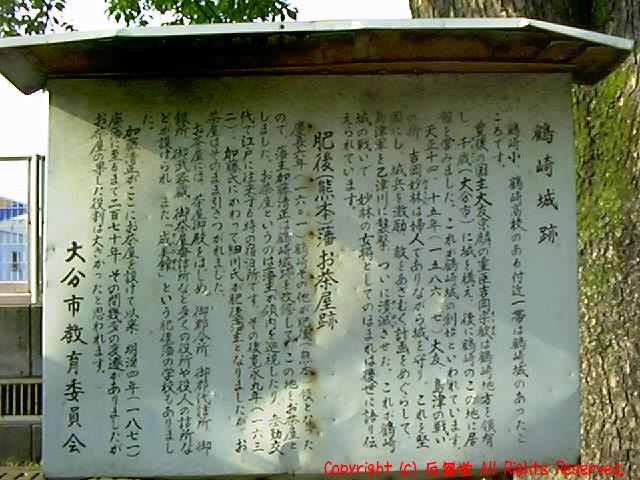 鶴崎城跡
鶴崎小 鶴崎高校のある付近一帯は鶴崎城のあったと
ころです。
豊後の国主大友宗麟の重臣吉岡宗歓は鶴崎地方を領有
し、千歳(大分市)に城を構え、後に鶴崎のこの地に居
館を営みました。これが鶴崎城の創始といわれています。
天正十四、十五年(一五八六、七)大友、島津の戦い
の折、吉岡妙林は婦人でありながら城を守り、これを堅
固にし、城兵を激励、敵をあざむく計画をめぐらして、
島津軍を乙津川に襲撃、ついに潰滅させた。これが鶴崎
城の戦いで、妙林の女将としてのほまれは後世に語り伝
えられています。
肥後(熊本)藩お茶屋跡
慶長六年(一六〇一)鶴崎その他が肥後(熊本)領となった
ので、藩主加藤清正は鶴崎城跡を改修して、この地をお茶屋と
しました。お茶屋というのは藩主が領内を巡視したり、参勤交
代で江戸に往来する時の宿泊所です。その後寛永九年(一六三
二)、加藤氏にかわって細川氏が肥後藩主になりましたが、お
茶屋はそのまま引きつがれました。
お茶屋には、茶屋御殿をはじめ、御郡会所、御郡代詰所、御
銀所、御兵器蔵、御茶屋番詰所など多くの役所や役人の詰所な
どが設けられ、また「成美館」という肥後藩の学校もありまし
た。
加藤清正がここにお茶屋を設けて以来、明治四年(一八七一)
廃藩に至るまで二百七十年、その間幾多の変遷がありましたが
お茶屋の果した役割は大きかったと思われます。
大分市教育委員会
Copyright (C) 丘智堂 All Rights Reserved.